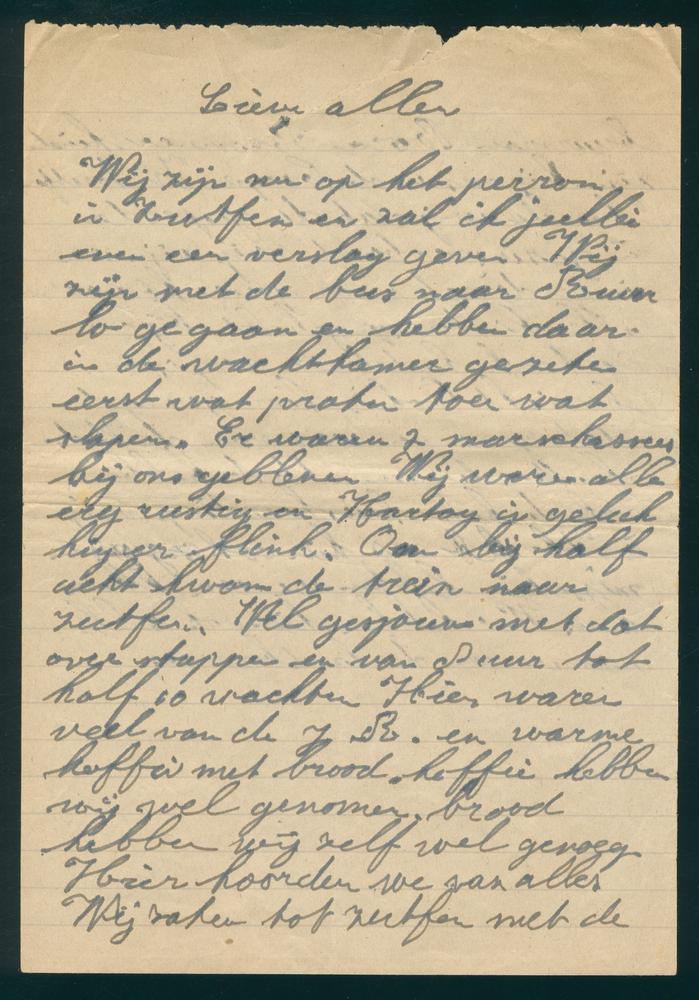 Lieve allen
Wij zijn nu op het perron
in Zutfen en zal ik jullie
even een verslag geven Wij
zijn met de bus naar Ruur
lo gegaan en hebben daar
in de wachtkamer gezeten
eerst wat praten toen wat
slapen. Er waren 2 marechaussees
bij ons gebleven Wij waren alle
erg rustig en Hartog is geluk
hiper flink. Om bij half
acht kwam de trein naar
zutfen. Wel gesjouw met dat
over stappen en van 8 uur tot
half 10 wachten Hier waren
veel van de J. R. en warme
koffie met brood. koffie hebben
wij wel genomen. brood
hebben wij zelf wel genoeg
Hier hoorden we van alles
Wij zaten tot zutfen met de